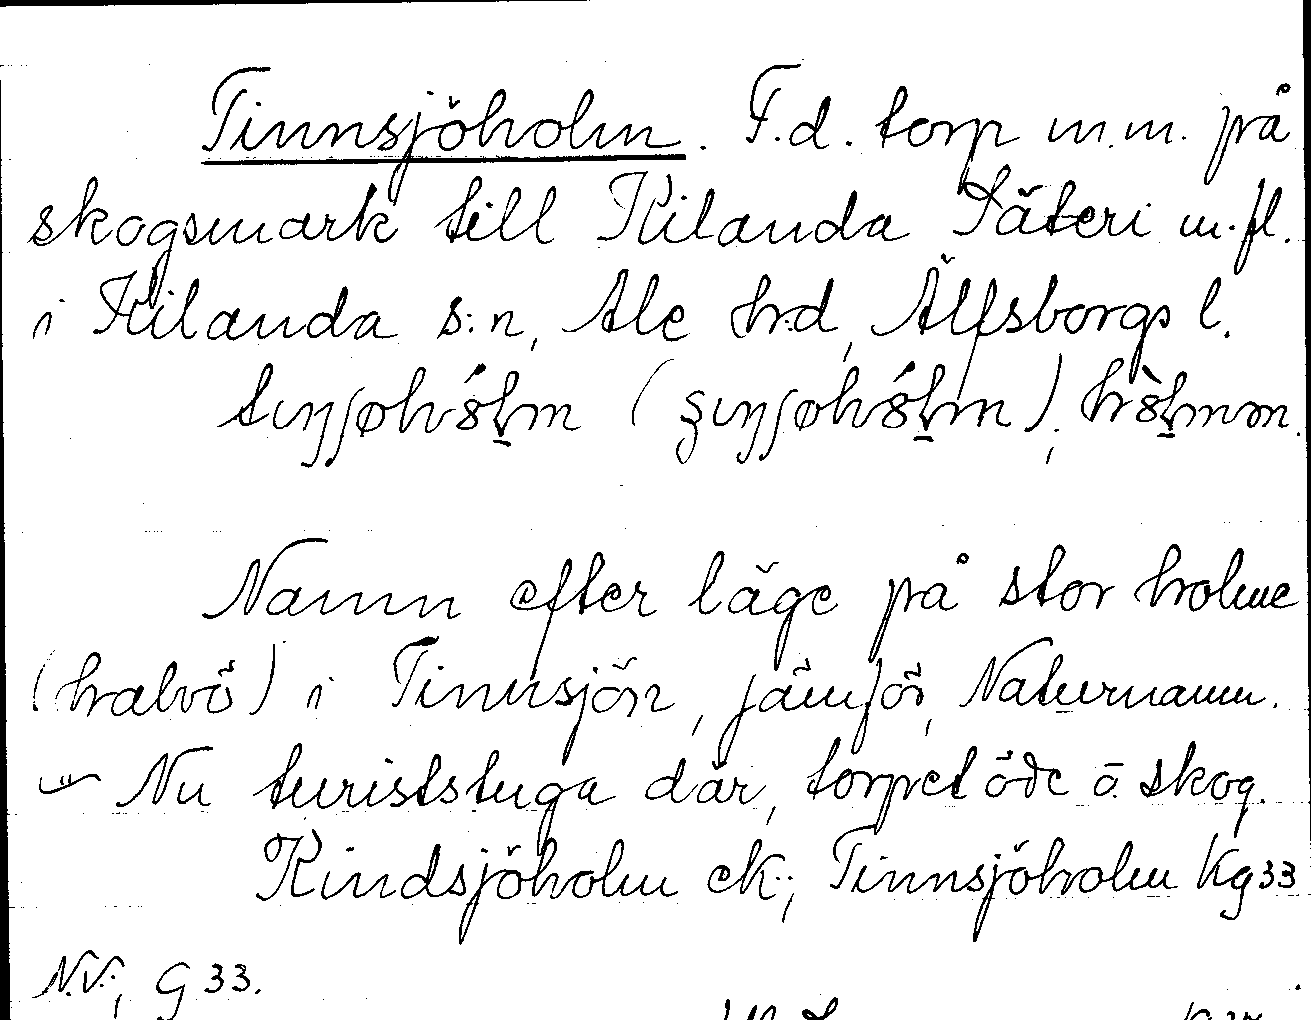 Tinnsjöholm. F.d. torp m.m. på
skogsmark till Kilanda Säteri m.fl.
i Kilanda s:n, Ale hd, Älfsborgs l.
Namn efter läge på stor holme
(halvö) i Tinnsjön, jämför, Naturnamn.
Nu turiststuga där, torpet öde o. skog.
Kindsjöholm ek.; Tinnsjöholm Kg 33
N.V.; G 33.